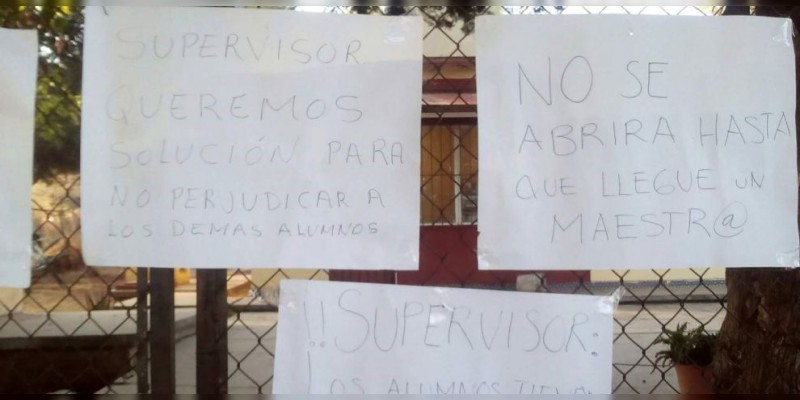 SUPERVISOR
QUEREMOS
SOLUCIÓN PARA
NO PERJUDICAR A
LOS DEMAS ALUMNOS
NO SE
ABRIRA HASTA
QUE LLEGUE UN
MAESTR@
!!SUPERVISOR:
LOS ALUMNOS TIENEN